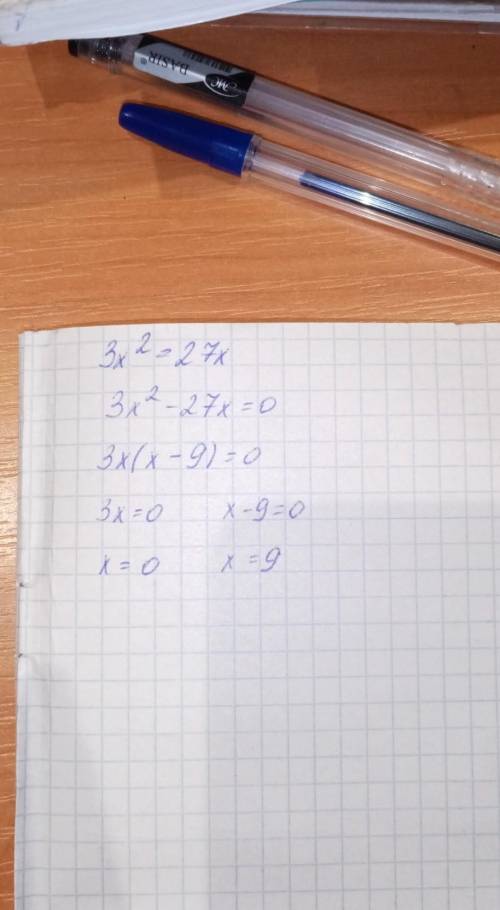 BASIR
MC
3x² = 27x
3x² - 27x = 0
3x(x - 9) = 0
3x = 0 x - 9 = 0
x = 0 x = 9